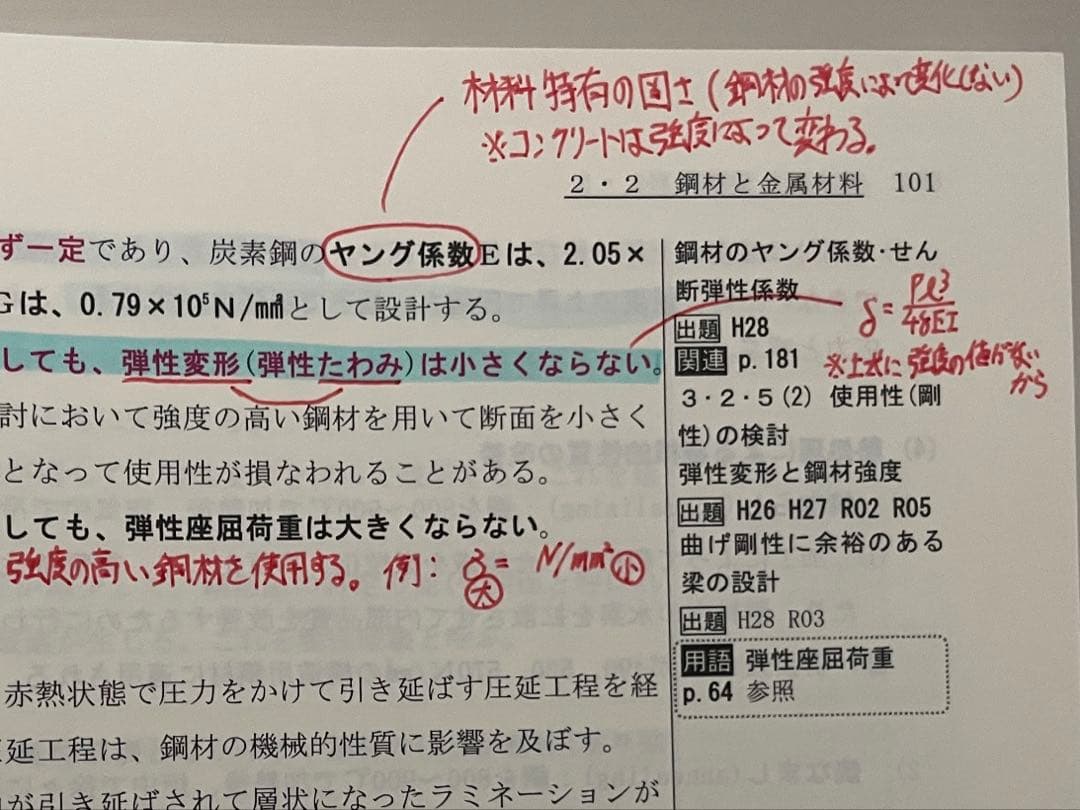 材料特有の固さ(鋼材の強度によって変化しない)
※コンクリートは強度によって変わる。
2・2 鋼材と金属材料 101
ず一定であり、炭素鋼のヤング係数Eは、2.05×
Gは、0.79×10⁵N/㎟として設計する。
しても、弾性変形(弾性たわみ)は小さくならない。
討において強度の高い鋼材を用いて断面を小さく
となって使用性が損なわれることがある。
しても、弾性座屈荷重は大きくならない。
強度の高い鋼材を使用する。例: = N/mm² 小
大
赤熱状態で圧力をかけて引き延ばす圧延工程を経
延工程は、鋼材の機械的性質に影響を及ぼす。
が引き延ばされて層状になったラミネーションが
鋼材のヤング係数・せん
断弾性係数
δ=Pℓ³/48EI
出題 H28
関連 p.181
※上式に強度の値がない
から
3・2・5(2) 使用性(剛
性)の検討
弾性変形と鋼材強度
出題 H26 H27 R02 R05
曲げ剛性に余裕のある
梁の設計
出題 H28 R03
用語 弾性座屈荷重
p.64 参照